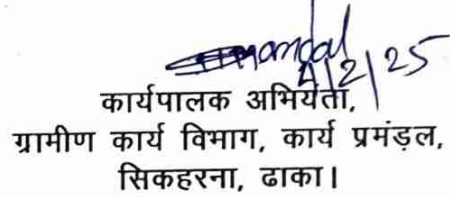 4/2/25
कार्यपालक अभियंता,
ग्रामीण कार्य विभाग, कार्य प्रमंड़ल,
सिकहरना, ढाका।